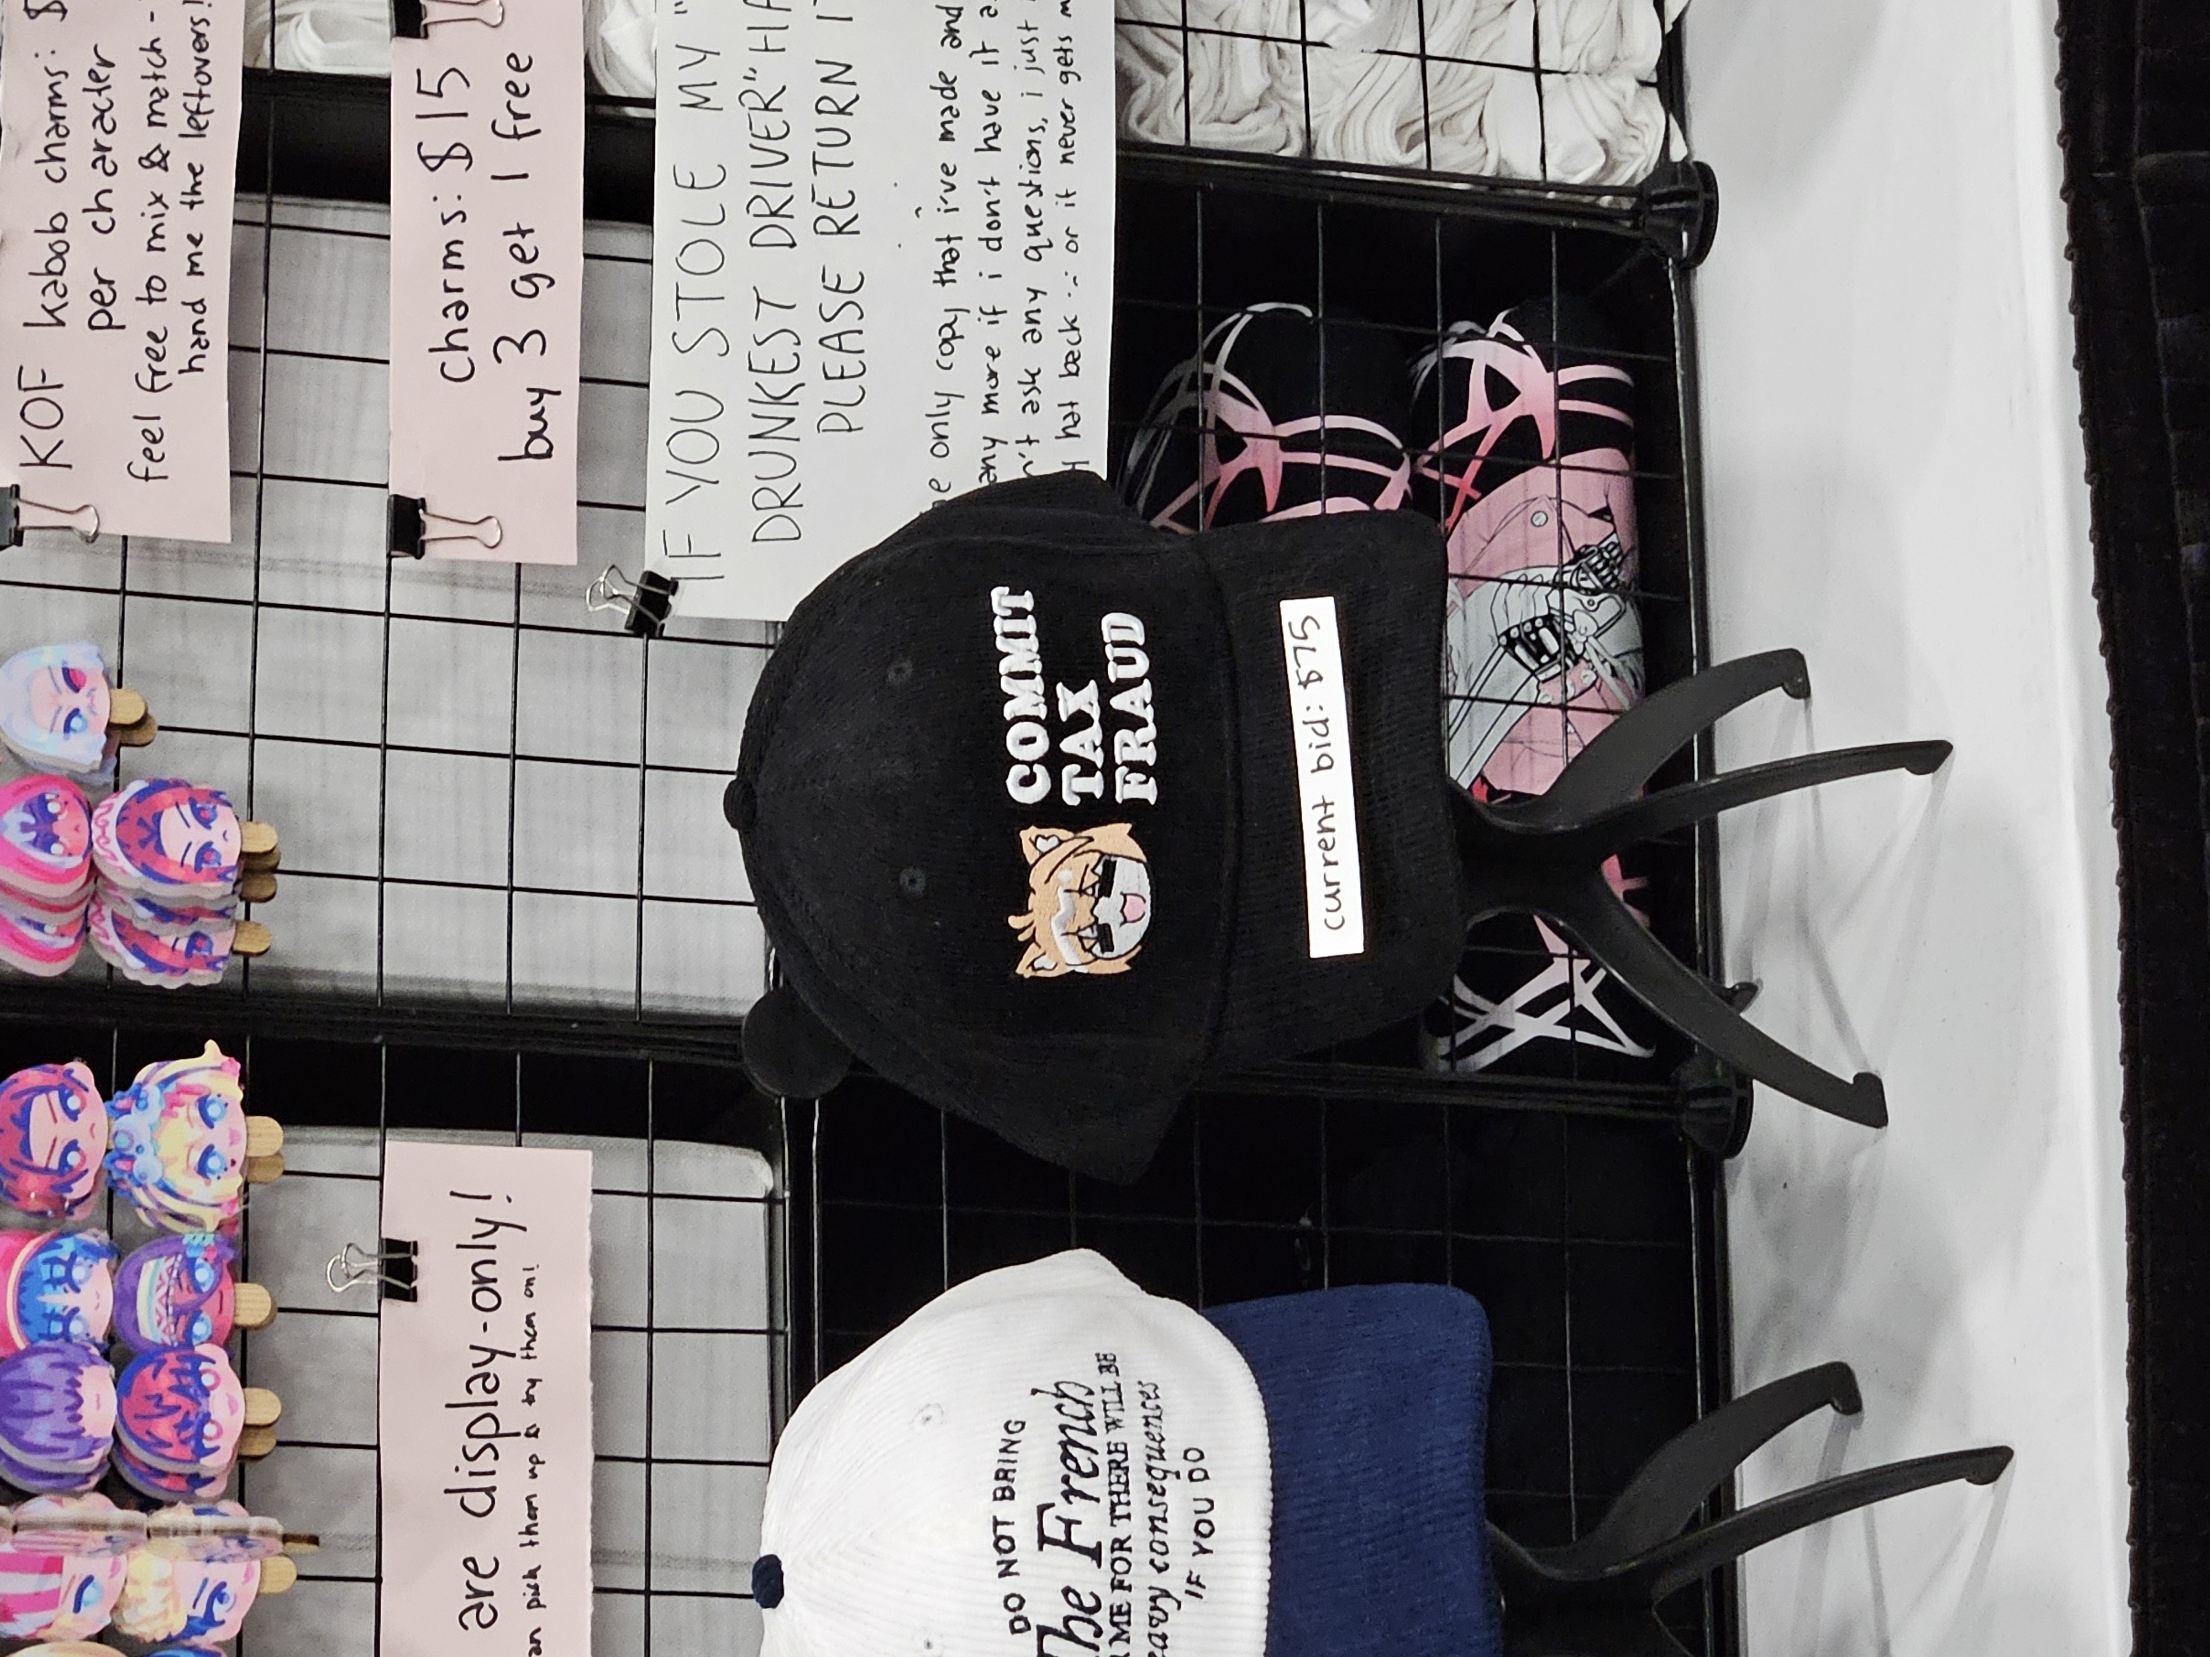 KOF kabob charms: $
per character
feel free to mix & match -
hand me the leftovers!
are display-only!
pick them up & try them on!
charms: $15
buy 3 get 1 free
IF YOU STOLE MY "
DRUNKEST DRIVER"
PLEASE RETURN
only copy that i've made and
any more if i don't have it
ask any questions, i just
hat back or it never gets
DO NOT BRING
The French
ME FOR THERE WILL BE
consequences
IF YOU DO
COMMIT
TAX
FRAUD
current bid: $75